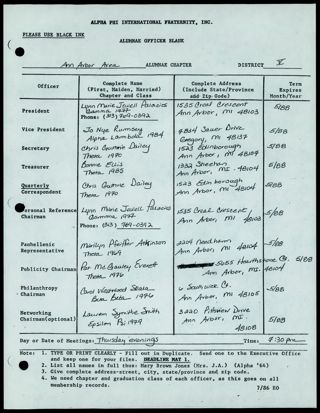 ALPHA PHI INTERNATIONAL FRATERNITY, INC.
PLEASE USE BLACK INK
ALUMNAE OFFICER BLANK
Ann Arbor Area ALUMNAE CHAPTER DISTRICT V
Officer Complete Name (First, Maiden, Married) Chapter and Class Complete Address (Include State/Province and Zip Code) Term Expires Month/Year
President Lynn Marie Jewell Palacios 1535 Great Crescent 5/88
Gamma 1977 Ann Arbor, MI 48103
Phone: (313) 769-0392
Vice President Jo Nye Rumsey 4814 Sauer Drive 5/88
Alpha Lambda 1984 Gregory, MI 48137
Secretary Chris Guthrie Dailey 1523 Edinborough 5/88
Theta 1970 Ann Arbor, MI 48104
Treasurer Bonnie Ellis 1332 Sheehan 5/88
Theta 1985 Ann Arbor, MI 48104
Quarterly Correspondent Chris Guthrie Dailey 1523 Edinborough 5/88
Theta 1970 Ann Arbor, MI 48104
Personal Reference Chairman Lynn Marie Jewell Palacios 1535 Great Crescent 5/88
Gamma, 1977 Ann Arbor, MI 48103
Phone: (313) 769-0392
Panhellenic Representative Marilyn Pfeiffer Atkinson 2204 Needham 5/88
Theta 1969 Ann Arbor, MI 48104
Publicity Chairman Pat McCauley Everett 5055 Hearthstone Ct. 5/88
Theta, 1976 Ann Arbor, MI.
Philanthropy Chairman Carol Westwood Seala 4 Southwick Ct. 5/88
Beta Beta 1976 Ann Arbor, MI 48105
Networking Chairman(optional) Lauren Smythe Smith 3220 Pittsview Drive 5/88
Epsilon Psi 1979 Ann Arbor, MI.
48108
Day or Date of Meetings: Thursday evenings Time: 7:30 pm
Note: 1. TYPE OR PRINT CLEARLY - Fill out in Duplicate. Send one to the Executive Office
and keep one for your files. DEADLINE MAY 1.
2. List all names in full thus: Mary Brown Jones (Mrs. J.A.) (Alpha '66)
3. Give complete address-street, city, state/province and zip code.
4. We need chapter and graduation class of each officer, as this goes on all
membership records.
7/86 EO